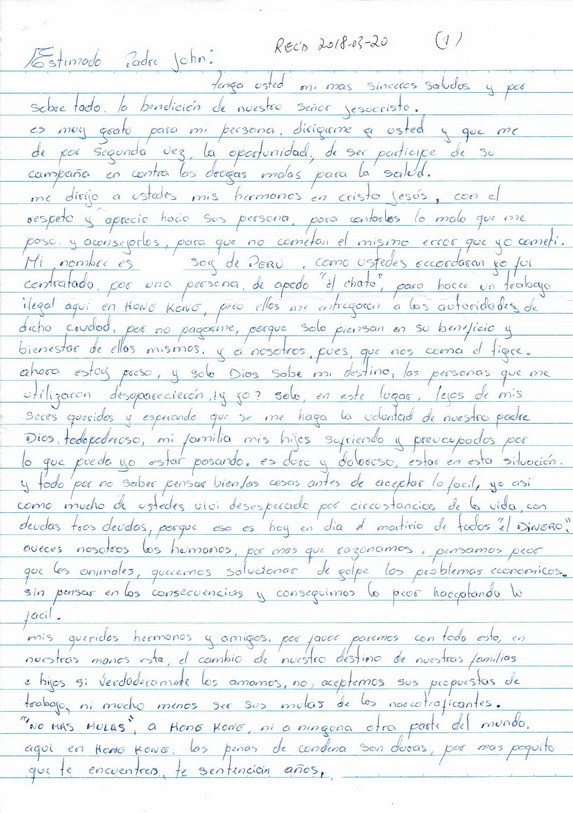 REC'D 2018-03-20 (1)
Estimado Padre John:
Tenga usted mi mas sinceros saludos y por
sobre todo, la bendición de nuestro señor Jesucristo.
es muy grato para mi persona, dirigirme a usted y que me
de por segunda vez, la oportunidad, de ser participe de su
campaña en contra las drogas malas para la salud.
me dirijo a ustedes mis hermanos en cristo Jesús, con el
respeto y aprecio hacia sus persona, para contarlos lo malo que me
paso, y aconsejarlos, para que no cometan el mismo error que yo cometi.
Mi nombre es soy de PERU, como ustedes recordaran yo fui
contratado, por una persona, de apodo "el chato", para hacer un trabajo
ilegal aqui en HONG KONG, pero ellos me entregaron a los autoridades de
dicho ciudad, por no pagarme, porque solo piensan en su beneficio y
bienestar de ellos mismos, y a nosotros, pues, que nos coma el tigre.
ahora estoy preso, y solo Dios sabe mi destino, las personas que me
utilizaron desaparecieron, ¿y yo? solo, en este lugar, lejos de mis
seres queridos y esperando que se me haga la voluntad de nuestro padre
Dios, todopoderoso, mi familia mis hijos sufriendo y preocupados por
lo que pueda yo estar pasando, es duro y doloroso, estar en esta situación.
y todo por no saber pensar bien las cosas antes de aceptar lo facil, yo asi
como mucho de ustedes vivi desesperado por circustancias de la vida, con
deudas tras deudas, porque eso es hoy en dia el martirio de todos "el DINERO".
aveces nosotros los humanos, por mas que razonamos, pensamos peor
que los animales, queremos solucionar de golpe los problemas economicos.
sin pensar en las consecuencias y conseguimos lo peor haceptando lo
facil.
mis queridos hermanos y amigos, por favor paremos con todo esto, en
nuestras manos esta, el cambio de nuestro destino de nuestras familias
e hijos si verdaderamente los amamos, no, aceptemos sus propuestas de
trabajo, ni mucho menos ser sus mulas de los narcotraficantes.
"NO MAS MULAS", a HONG KONG, ni a ninguna otra parte del mundo.
aqui en HONG KONG, las penas de condena son duras, por mas poquito
que te encuentren, te sentencian años,